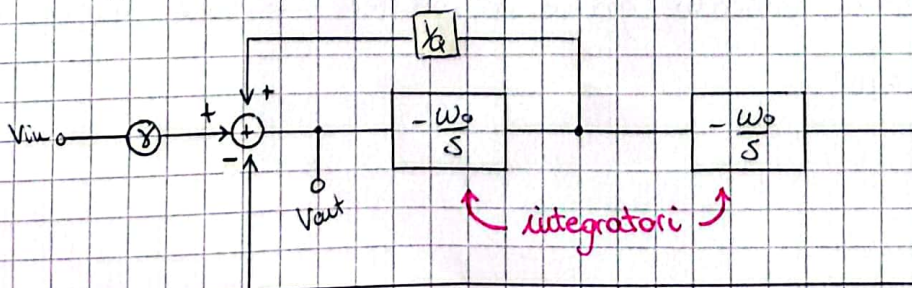 1/Q
+
Vin γ + + -ω₀/S -ω₀/S
-
Vout
integratori